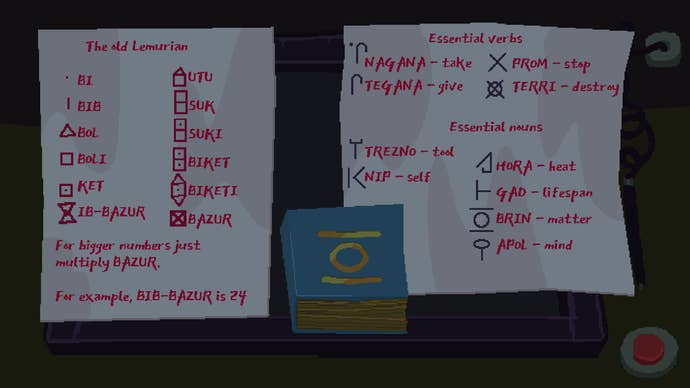 The old Lemurian
BI
BIB
BOL
BOLI
KET
IB-BAZUR
UTU
SUK
SUKI
BIKET
BIKETI
BAZUR
For bigger numbers just
multiply BAZUR.
For example, BIB-BAZUR is 24
Essential verbs
NAGANA - take
TEGANA - give
PROM - stop
TERRI - destroy
Essential nouns
TREZNO - tool
NIP - self
HORA - heat
GAD - lifespan
BRIN - matter
APOL - mind